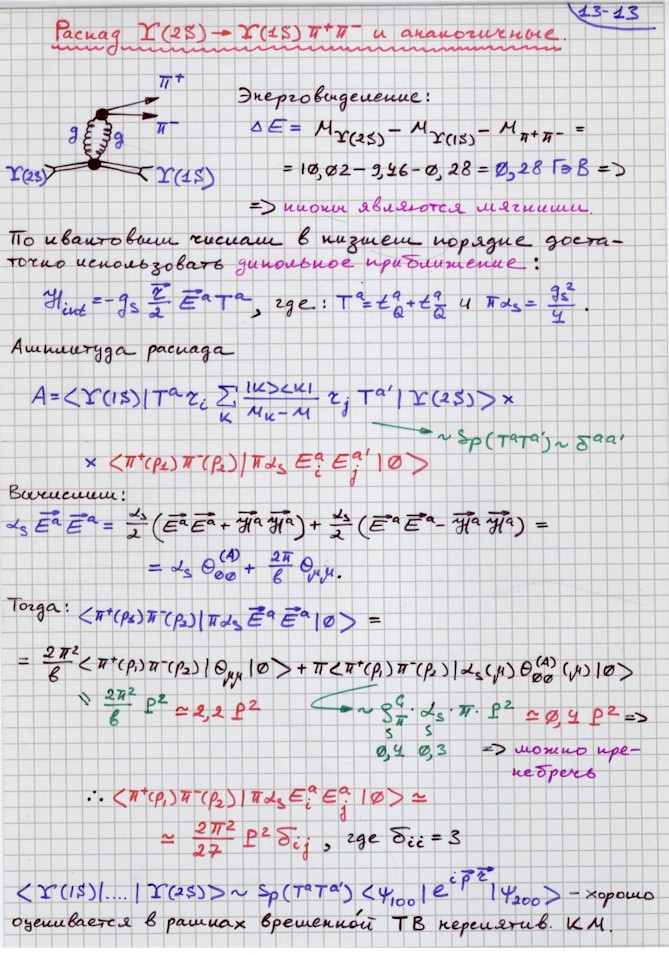 13-13
Распад ϒ(2S) → ϒ(1S) π⁺π⁻ и аналогичные.
π⁺
π⁻
g g
ϒ(2S) ϒ(1S)
Энерговыделение:
ΔE = M_ϒ(2S) − M_ϒ(1S) − M_π⁺π⁻ =
= 10,02 − 9,46 − 0,28 = 0,28 ГэВ =>
=> пионы являются мягкими.
По квантовым числам в низшем порядке доста-
точно использовать дипольное приближение:
H_int = −g_s r⃗/2 E⃗ᵃ Tᵃ, где: Tᵃ = t^a_Q + t^a_Q̄ и πα_s = g_s²/4.
Амплитуда распада
A = <ϒ(1S)| Tᵃ r_i Σ_K |K><K|/(M_K − M) r_j Tᵃ' |ϒ(2S)> ×
~ Sp(TᵃTᵃ') ~ δᵃᵃ'
× <π⁺(p₁) π⁻(p₂)| πα_s E_iᵃ E_jᵃ' |0>
Вычислим:
α_s E⃗ᵃ E⃗ᵃ = α_s/2 (E⃗ᵃE⃗ᵃ + H⃗ᵃH⃗ᵃ) + α_s/2 (E⃗ᵃE⃗ᵃ − H⃗ᵃH⃗ᵃ) =
= α_s θ₀₀^(A) + 2π/b θ_μμ.
Тогда: <π⁺(p₁) π⁻(p₂)| πα_s E⃗ᵃ E⃗ᵃ |0> =
= 2π²/b <π⁺(p₁) π⁻(p₂)| θ_μμ |0> + π <π⁺(p₁) π⁻(p₂)| α_s(μ) θ₀₀^(A)(μ) |0>
= 2π²/b P² ≃ 2,2 P² ~ ρ^G_π · α_s · π · P² ≃ 0,4 P² =>
0,4 0,3 => можно пре-
небречь
∴ <π⁺(p₁) π⁻(p₂)| πα_s E_iᵃ E_jᵃ |0> ≃
≃ 2π²/27 P² δ_ij, где δ_ii = 3
<ϒ(1S)|....|ϒ(2S)> ~ Sp(TᵃTᵃ') <ψ₁₀₀| e^{i p⃗ r⃗} |ψ₂₀₀> – хорошо
оценивается в рамках временной ТВ нерелятив. КМ.